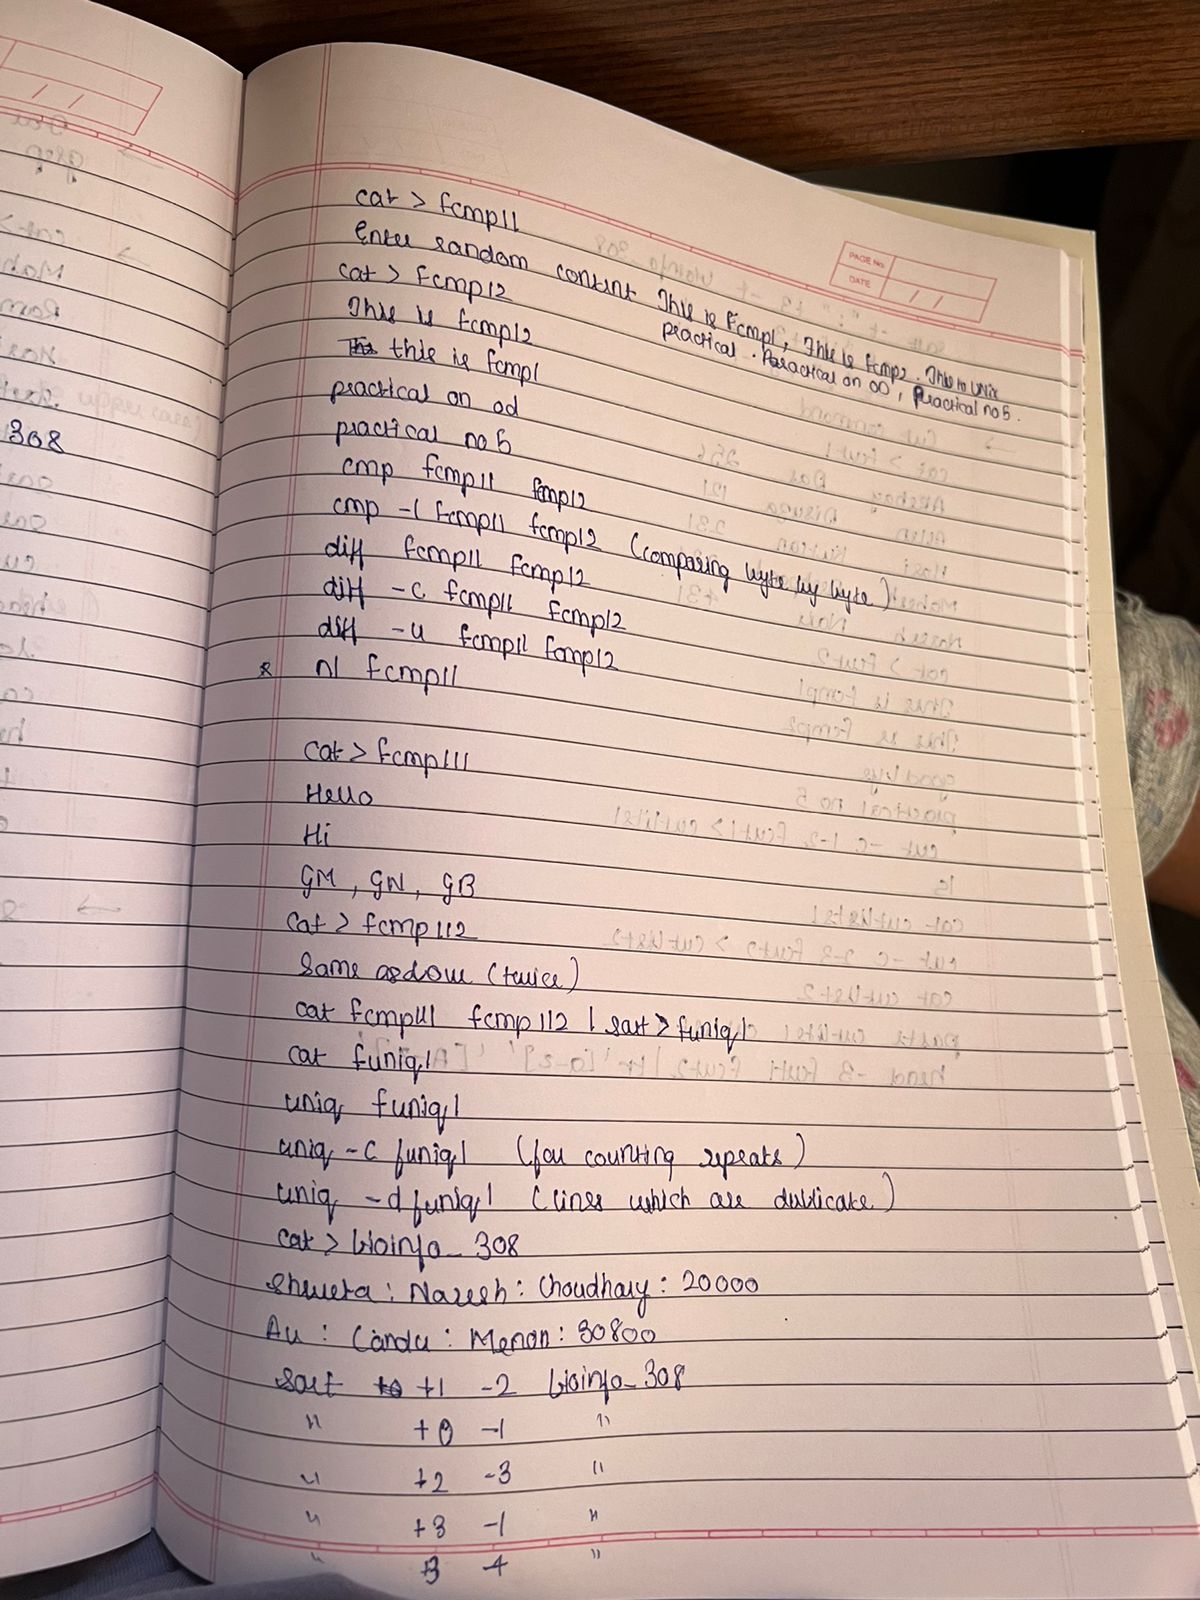 PAGE No.
DATE / /
cat > fcmp11
Enter random content This is Fcmp1, This is fcmp2. This is Unix
practical. Practical on OD, practical no 5.
cat > fcmp12
This is fcmp12
this is fcmp1
practical on od
practical no 5
cmp fcmp11 fcmp12
cmp -l fcmp11 fcmp12 (comparing byte by byte)
diff fcmp11 fcmp12
diff -c fcmp11 fcmp12
diff -u fcmp11 fcmp12
* nl fcmp11
cat > fcmp111
Hello
Hi
GM, GN, GB
cat > fcmp112
Same as (twice)
cat fcmp111 fcmp112 | sort > funiq1
cat funiq1
uniq funiq1
uniq -c funiq1 (for counting repeats)
uniq -d funiq1 (lines which are dublicate)
cat > bioinfo_308
Shweta : Naresh : Choudhary : 20000
: Menon : 30800
sort +1 -2 bioinfo_308
" +0 -1 "
" +2 -3 "
" +3 -1 "
" 3 -4 "
308